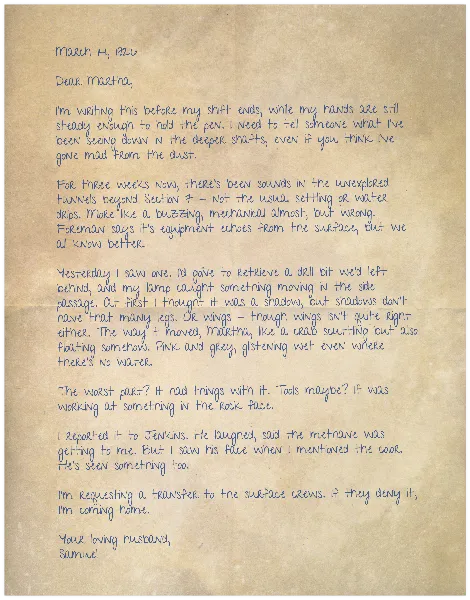 March 14, 1920
Dear Martha,
I'm writing this before my shift ends, while my hands are still
steady enough to hold the pen. I need to tell someone what I've
been seeing down in the deeper shafts, even if you think I've
gone mad from the dust.
For three weeks now, there's been sounds in the unexplored
tunnels beyond Section 7 – not the usual settling or water
drips. More like a buzzing, mechanical almost, but wrong.
Foreman says it's equipment echoes from the surface, but we
all know better.
Yesterday I saw one. I'd gone to retrieve a drill bit we'd left
behind, and my lamp caught something moving in the side
passage. At first I thought it was a shadow, but shadows don't
have that many legs. Or wings – though wings isn't quite right
either. The way it moved, Martha, like a crab scuttling but also
floating somehow. Pink and grey, glistening wet even where
there's no water.
The worst part? It had things with it. Tools maybe? It was
working at something in the rock face.
I reported it to Jenkins. He laughed, said the methane was
getting to me. But I saw his face when I mentioned the color.
He's seen something too.
I'm requesting a transfer to the surface crews. If they deny it,
I'm coming home.
Your loving husband,
Samuel